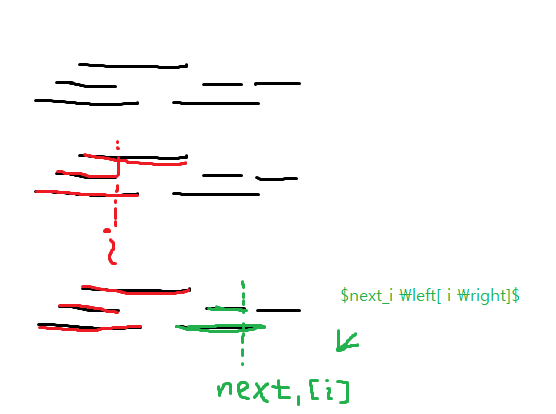 i
$next_i ₩left[ i ₩right]$
next, [i]